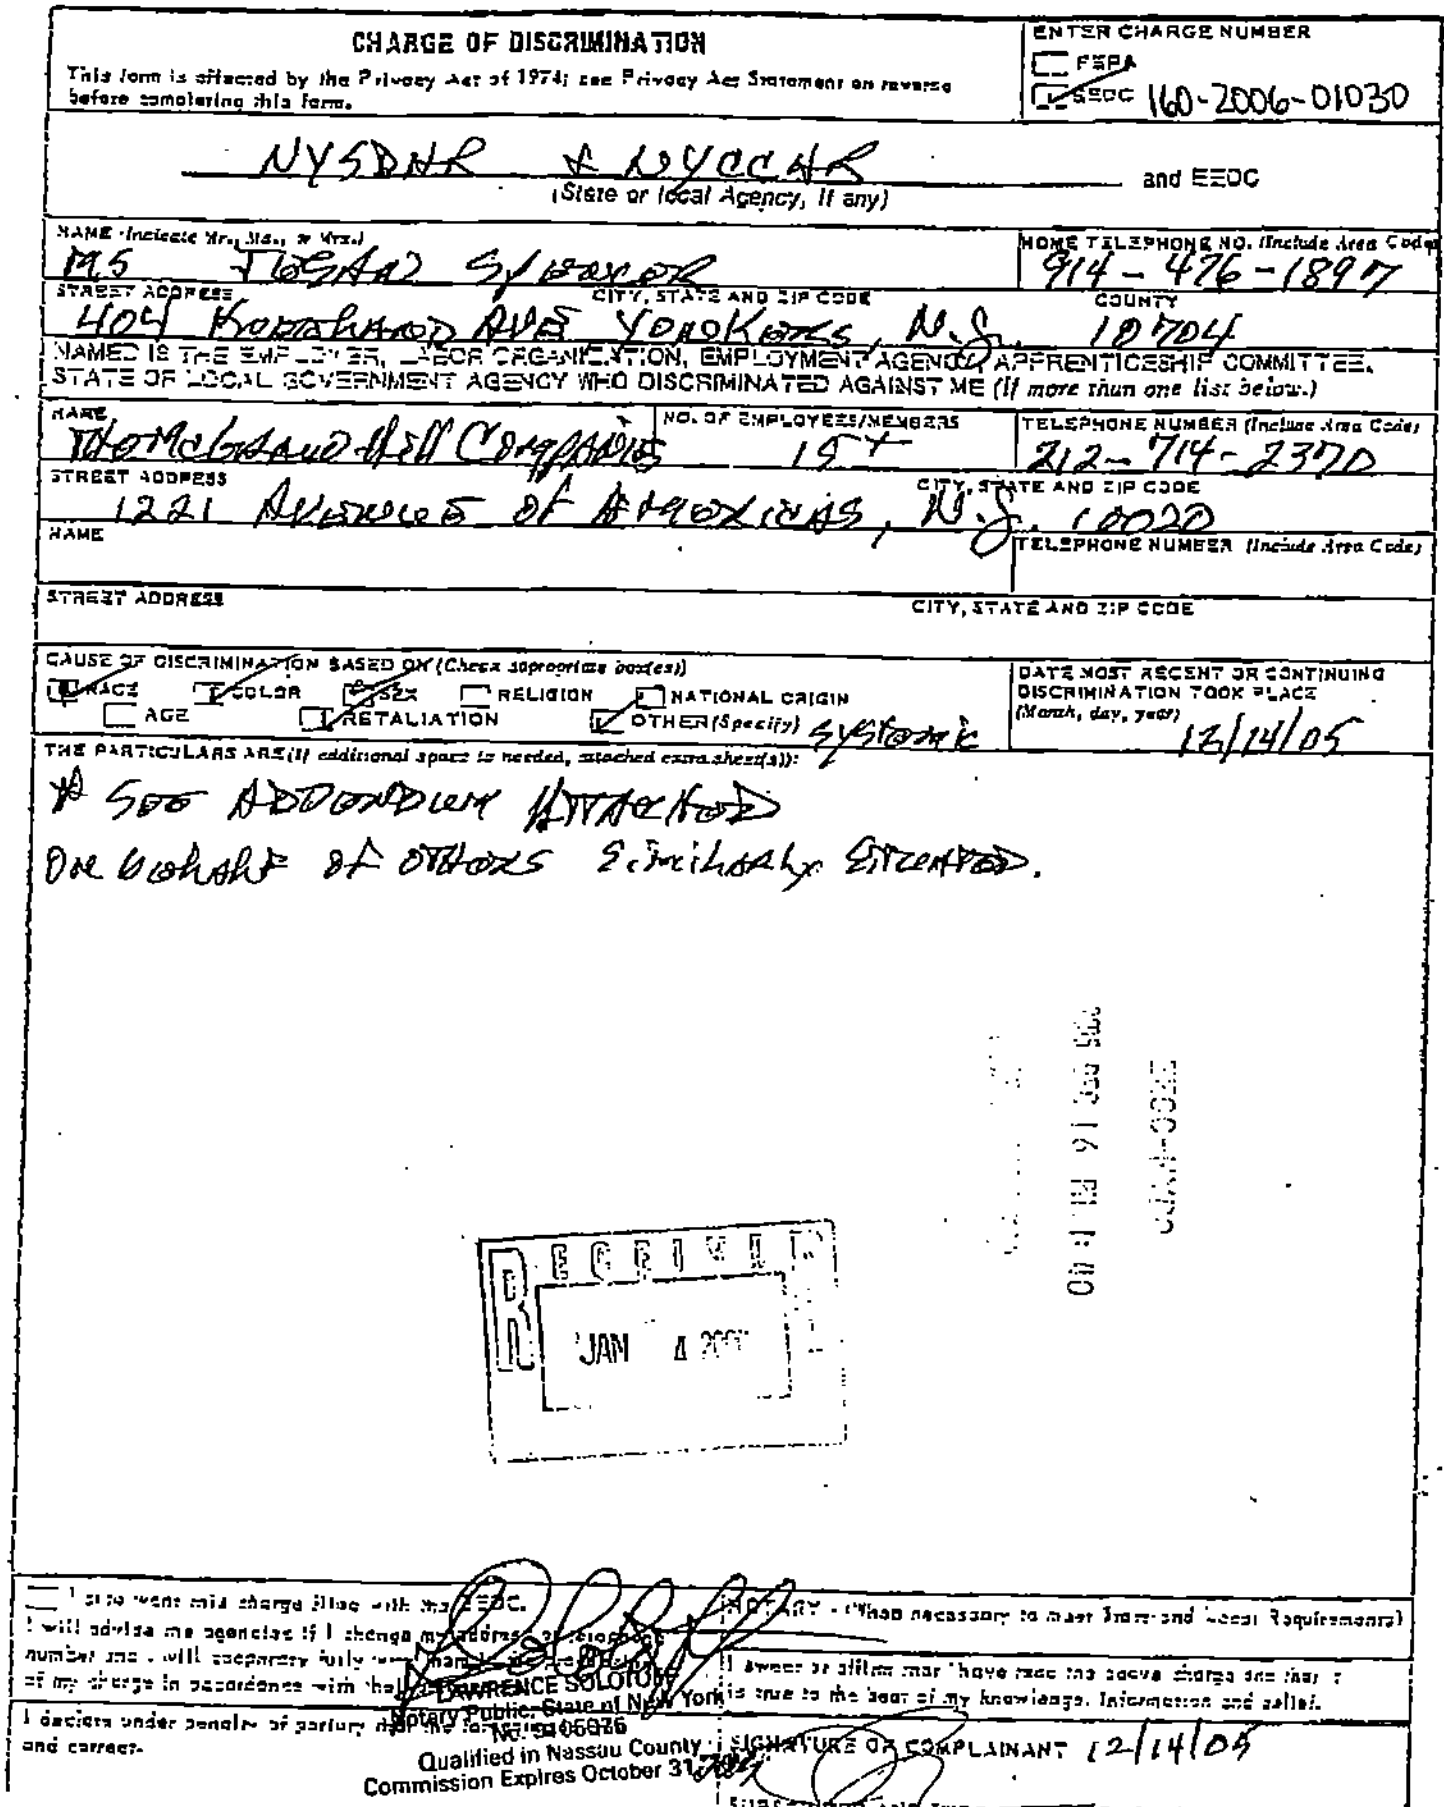 CHARGE OF DISCRIMINATION
This form is affected by the Privacy Act of 1974; see Privacy Act Statement on reverse
before completing this form.
ENTER CHARGE NUMBER
FEPA
EEOC 160-2006-01030
NYSDHR & NYCCHR
and EEOC
(State or local Agency, if any)
NAME (Indicate Mr., Ms., or Mrs.)
MS
HOME TELEPHONE NO. (Include Area Code)
914-476-1897
STREET ADDRESS
CITY, STATE AND ZIP CODE
COUNTY
404 AVE YONKERS, N.Y. 10704
NAMED IS THE EMPLOYER, LABOR ORGANIZATION, EMPLOYMENT AGENCY, APPRENTICESHIP COMMITTEE,
STATE OR LOCAL GOVERNMENT AGENCY WHO DISCRIMINATED AGAINST ME (If more than one list below.)
NAME
The McGraw-Hill Companies
NO. OF EMPLOYEES/MEMBERS
15+
TELEPHONE NUMBER (Include Area Code)
212-714-2370
STREET ADDRESS
CITY, STATE AND ZIP CODE
1221 AVENUE OF AMERICAS, N.Y. 10020
NAME
TELEPHONE NUMBER (Include Area Code)
STREET ADDRESS
CITY, STATE AND ZIP CODE
CAUSE OF DISCRIMINATION BASED ON (Check appropriate box(es))
RACE COLOR SEX RELIGION NATIONAL ORIGIN
AGE RETALIATION OTHER (Specify) SYSTEMIC
DATE MOST RECENT OR CONTINUING
DISCRIMINATION TOOK PLACE
(Month, day, year)
12/14/05
THE PARTICULARS ARE (If additional space is needed, attached extra sheet(s)):
* SEE ADDENDUM ATTACHED
ON BEHALF OF OTHERS SIMILARLY SITUATED.
RECEIVED
JAN 4
I also want this charge filed with the EEOC.
I will advise the agencies if I change my address or telephone
number and I will cooperate fully with them
of my charge in accordance with
I declare under penalty of perjury that the
and correct.
LAWRENCE SOLOTOFF
Notary Public, State of New York
Qualified in Nassau County
Commission Expires October 31,
NOTARY - (When necessary to meet State and Local Requirements)
I swear or affirm that I have read the above charge and that it
is true to the best of my knowledge, information and belief.
SIGNATURE OF COMPLAINANT 12/14/05